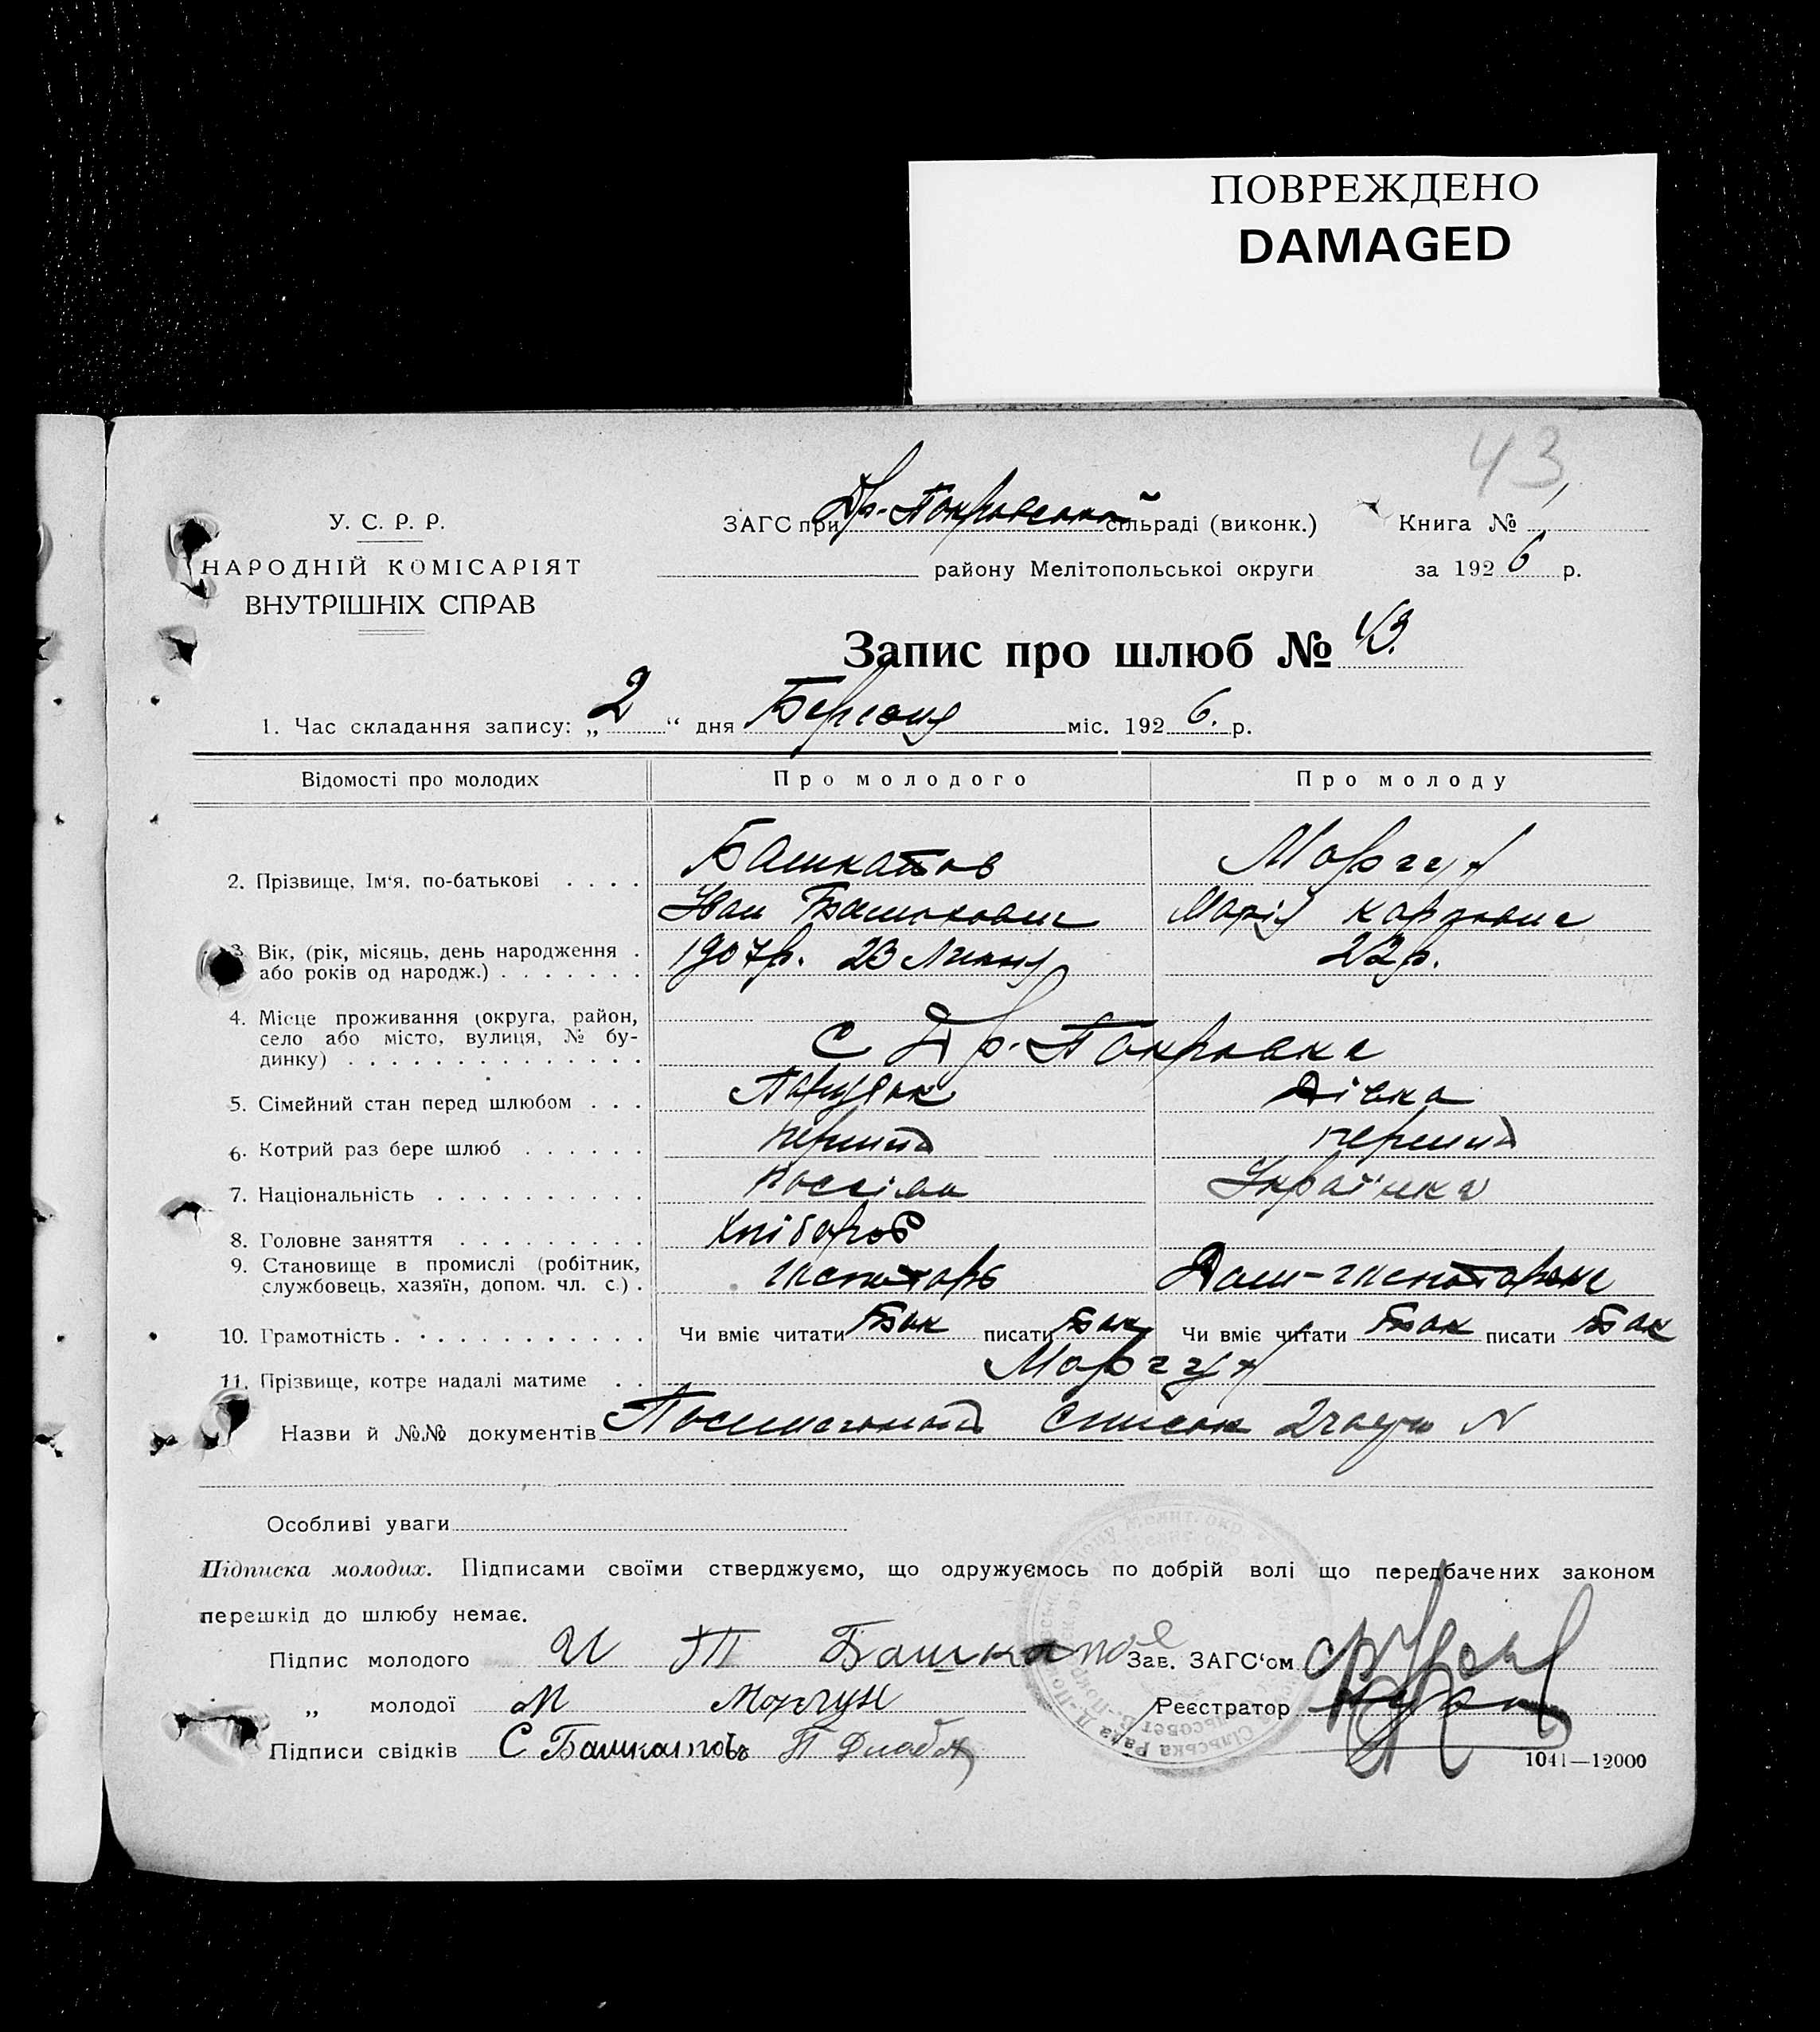 ПОВРЕЖДЕНО
DAMAGED
43
У. С. Р. Р.
НАРОДНІЙ КОМІСАРІЯТ
ВНУТРІШНІХ СПРАВ
ЗАГС при Др-Покровській сільраді (виконк.)
району Мелітопольської округи
Книга № 1
за 1926 р.
Запис про шлюб № 43.
1. Час складання запису: „2“ дня Березня міс. 1926. р.
Відомості про молодих Про молодого Про молоду
2. Прізвище, Ім‘я, по-батькові . . . . Башкатов Моргун
Іван Марія Карповна
3. Вік, (рік, місяць, день народження . або років од народж.) . . . . . . . 1907р. 23 22р.
4. Місце проживання (округа, район, село або місто, вулиця, № будинку) . . . . . . . . . . . . . . С Др. Покровка
5. Сімейний стан перед шлюбом . . . Парубок Дівка
6. Котрий раз бере шлюб . . . . . . перший перший
7. Національність . . . . . . . . . . Українка
8. Головне заняття . . . . . . . . . Хлібороб
9. Становище в промислі (робітник, службовець, хазяїн, допом. чл. с.) .
10. Грамотність . . . . . . . . . . . . Чи вміє читати Так писати Так Чи вміє читати Так писати Так
11. Прізвище, котре надалі матиме . . Моргун
Назви й №№ документів список N
Особливі уваги
Підписка молодих. Підписами своїми стверджуємо, що одружуємось по добрій волі що передбачених законом
перешкід до шлюбу немає.
Підпис молодого И П Башкатов Зав. ЗАГС‘ом
„ молодої М Моргун Реєстратор
Підписи свідків С Башкатовъ П
1041—12000